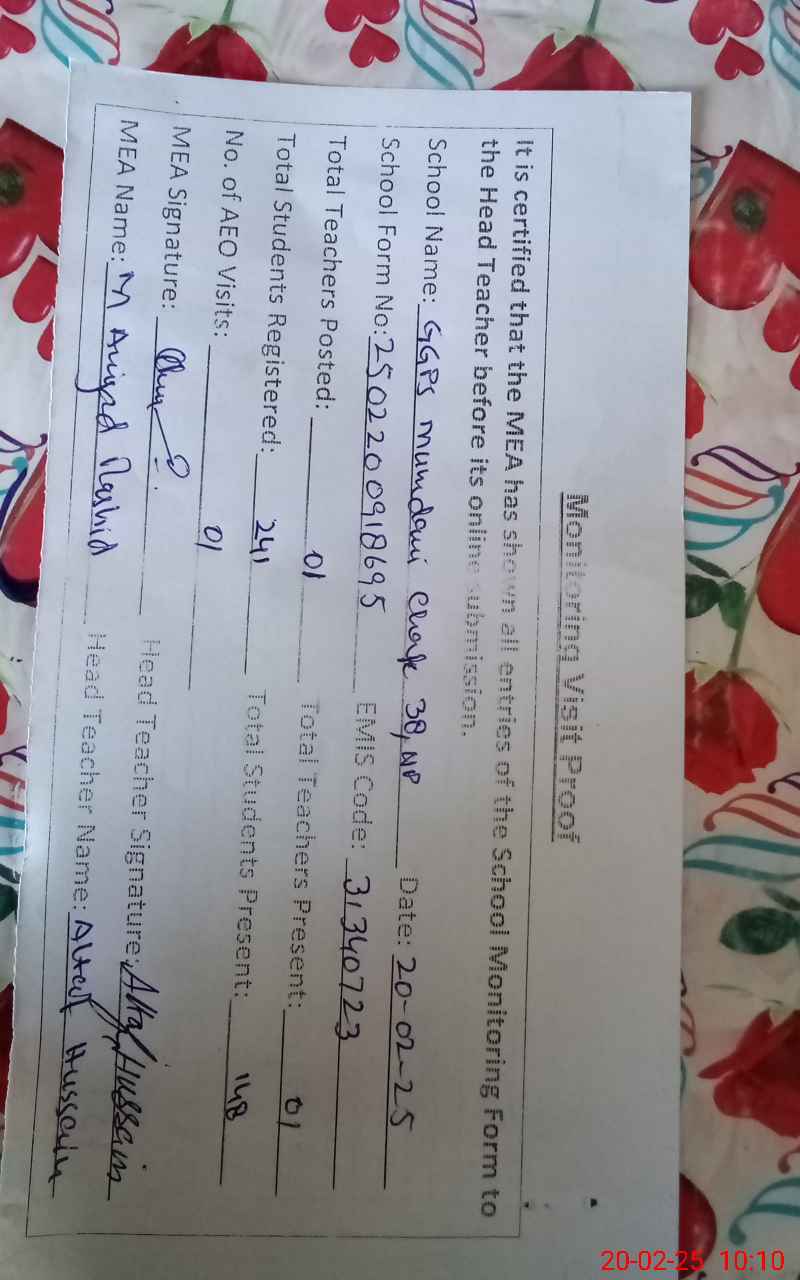 Monitoring Visit Proof
It is certified that the MEA has shown all entries of the School Monitoring Form to
the Head Teacher before its online submission.
School Name: GGPS Mumdani Chak 38, NP Date: 20-02-25
School Form No: 2502200918695 EMIS Code: 31340723
Total Teachers Posted: 01 Total Teachers Present: 01
Total Students Registered: 241 Total Students Present: 148
No. of AEO Visits: 01
MEA Signature: Head Teacher Signature: Altaf Hussain
MEA Name: M Amjad Rashid Head Teacher Name: Altaf Hussain
20-02-25 10:10